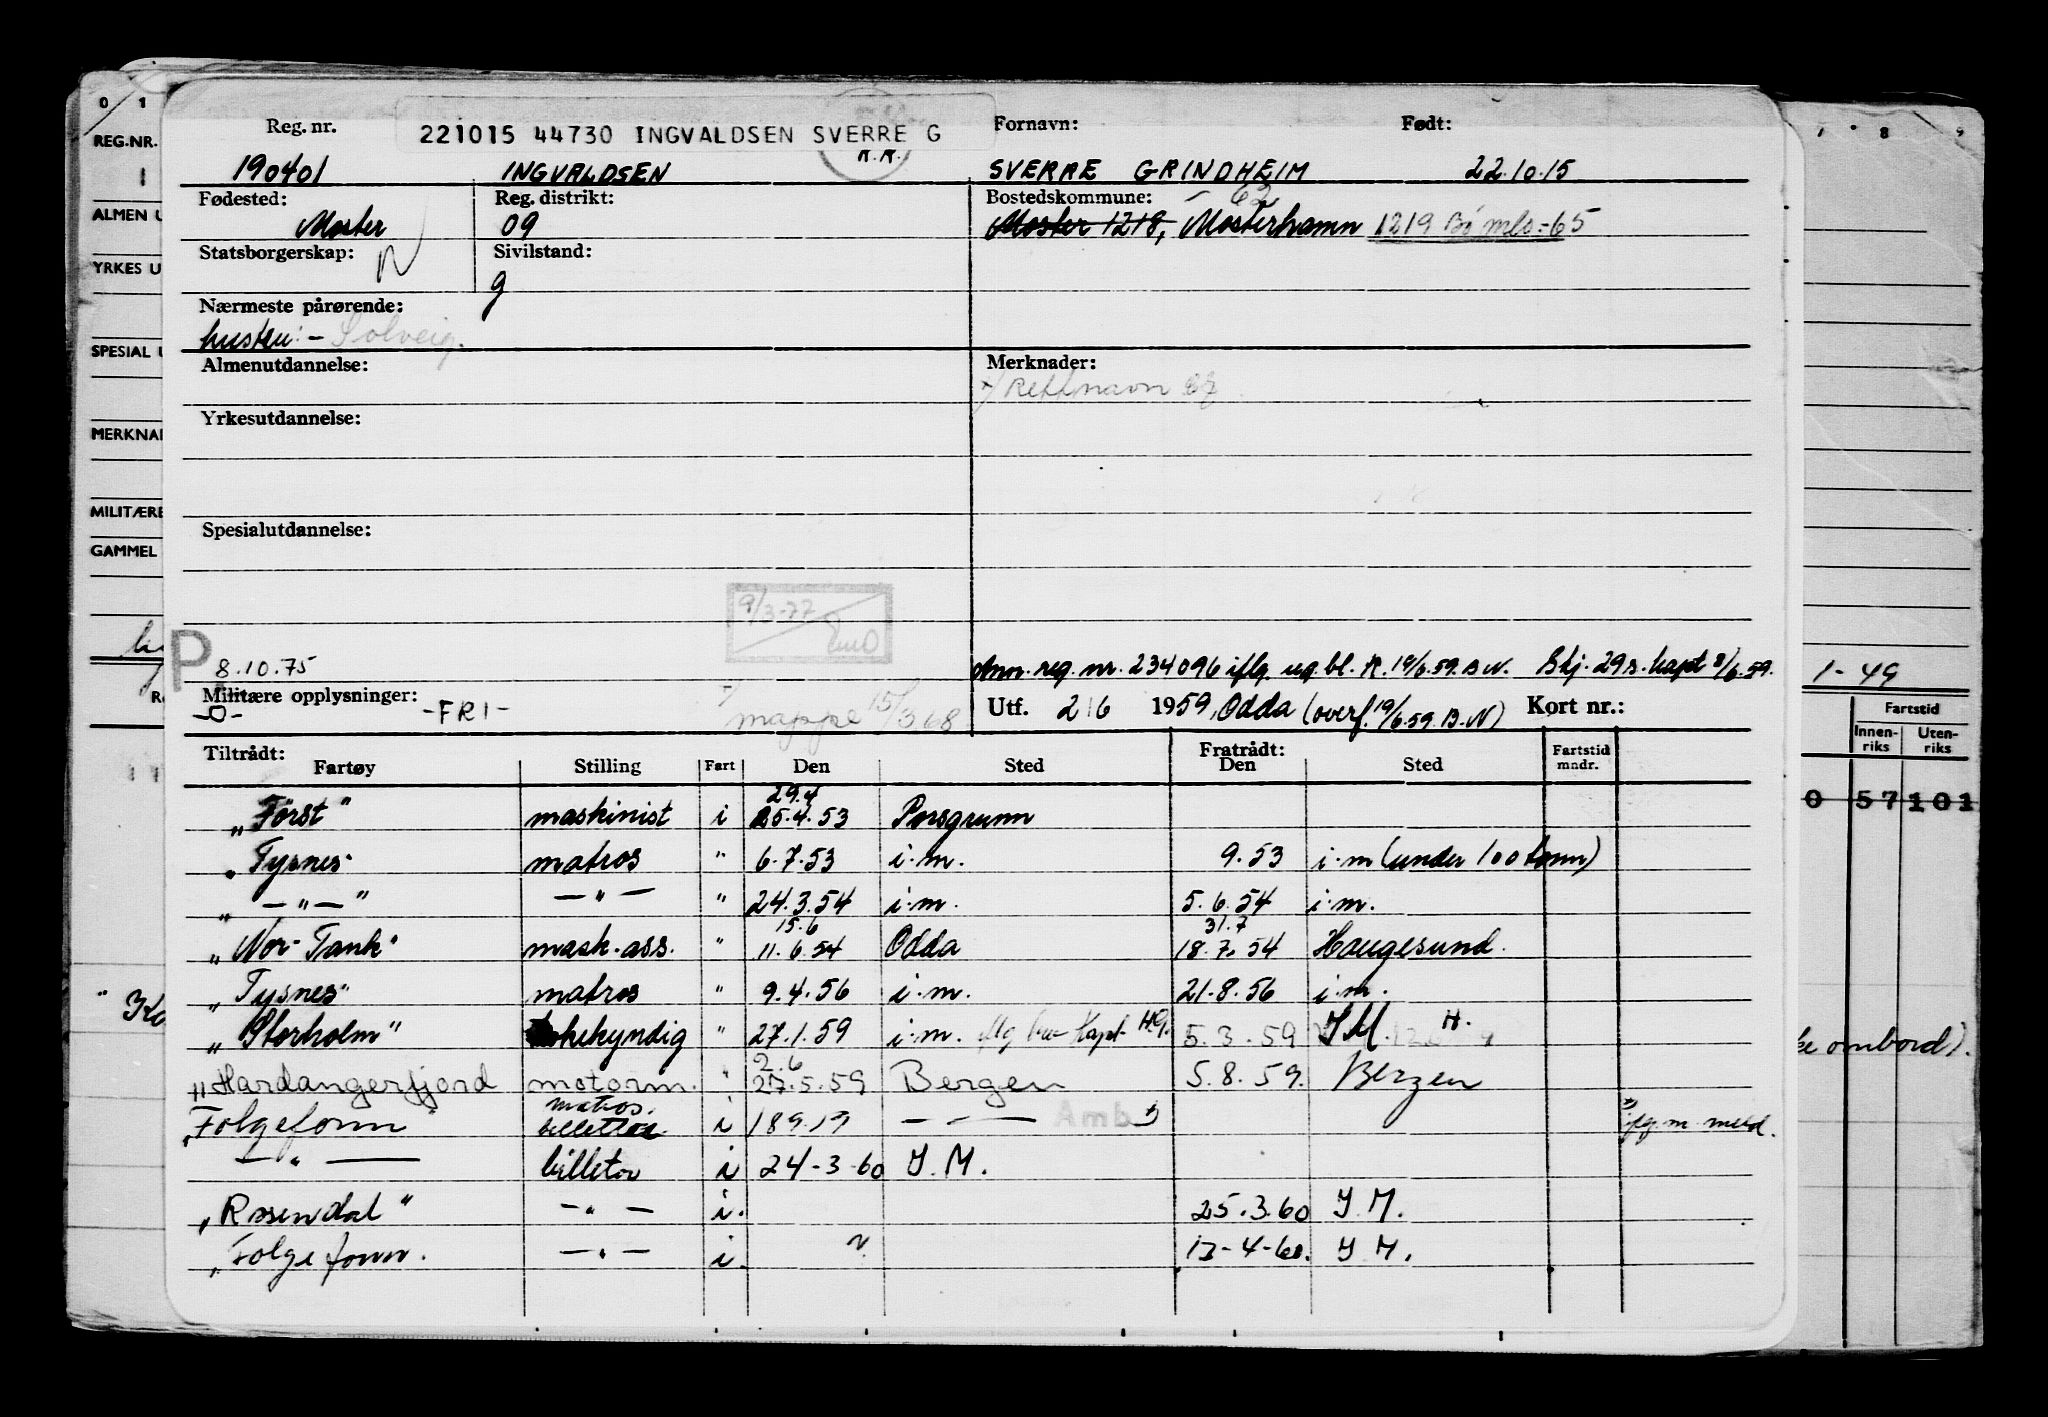 0 1
REG.NR.
ALMEN U
YRKES U
SPESIAL U
MERKNA
MILITÆRE
GAMMEL
Reg. nr.
221015 44730 INGVALDSEN SVERRE G
Fornavn:
Født:
190401
INGVALDSEN
SVERRE GRINDHEIM
22.10.15
Fødested:
Reg. distrikt:
Bostedskommune:
62
Moster
09
Moster 1218, Mosterhamn 1219 Bømlo-65
Statsborgerskap:
N
Sivilstand:
g
Nærmeste pårørende:
hustru:- Solveig.
Almenutdannelse:
Merknader:
Rett navn
Yrkesutdannelse:
Spesialutdannelse:
9/3-77
P
8.10.75
Ann. reg. nr. 234096 iflg. reg. bl. R. 19/6.59. B.N. Skj. 29 s. kapt 8/6.59.
Militære opplysninger:
-0-
-FRI-
mappe 15/3 68
Utf. 2/6 1959, Odda (overf. 19/6.59. B.N)
Kort nr.:
Tiltrådt:
Fratrådt:
Fartøy
Stilling
Fart
Den
Sted
Den
Sted
Fartstid
mndr.
29.4
"Forst" maskinist i 25.4.53 Porsgrunn
"Tysnes" matros " 6.7.53 i.m. 9.53 i.m (under 100 tonn)
" — " — " — " — " 24.3.54 i.m. 5.6.54 i.m.
15.6 31.7
"Nor-Tank" mask.ass. " 11.6.54 Odda 18.7.54 Haugesund.
"Tysnes" matros " 9.4.56 i.m. 21.8.56 i.m.
"Storholm" kekyndig " 27.1.59 i.m. 5.3.59 I M. H.
2.6
"Hardangerfjord motorm. " 27.5.59 Bergen 5.8.59. Bergen
matros.
"Folgefonn" billettør i — " — Amb
iflg. m. meld.
— " — billetør i 24-3-60 I.M.
"Rosendal" — " — i. 25.3.60 I.M.
"Folgefonn. — " — i. 13-4-60. I M.
7 8 9
1-49
Fartstid
Innen-
riks
Uten-
riks
0 57 101
ombord).